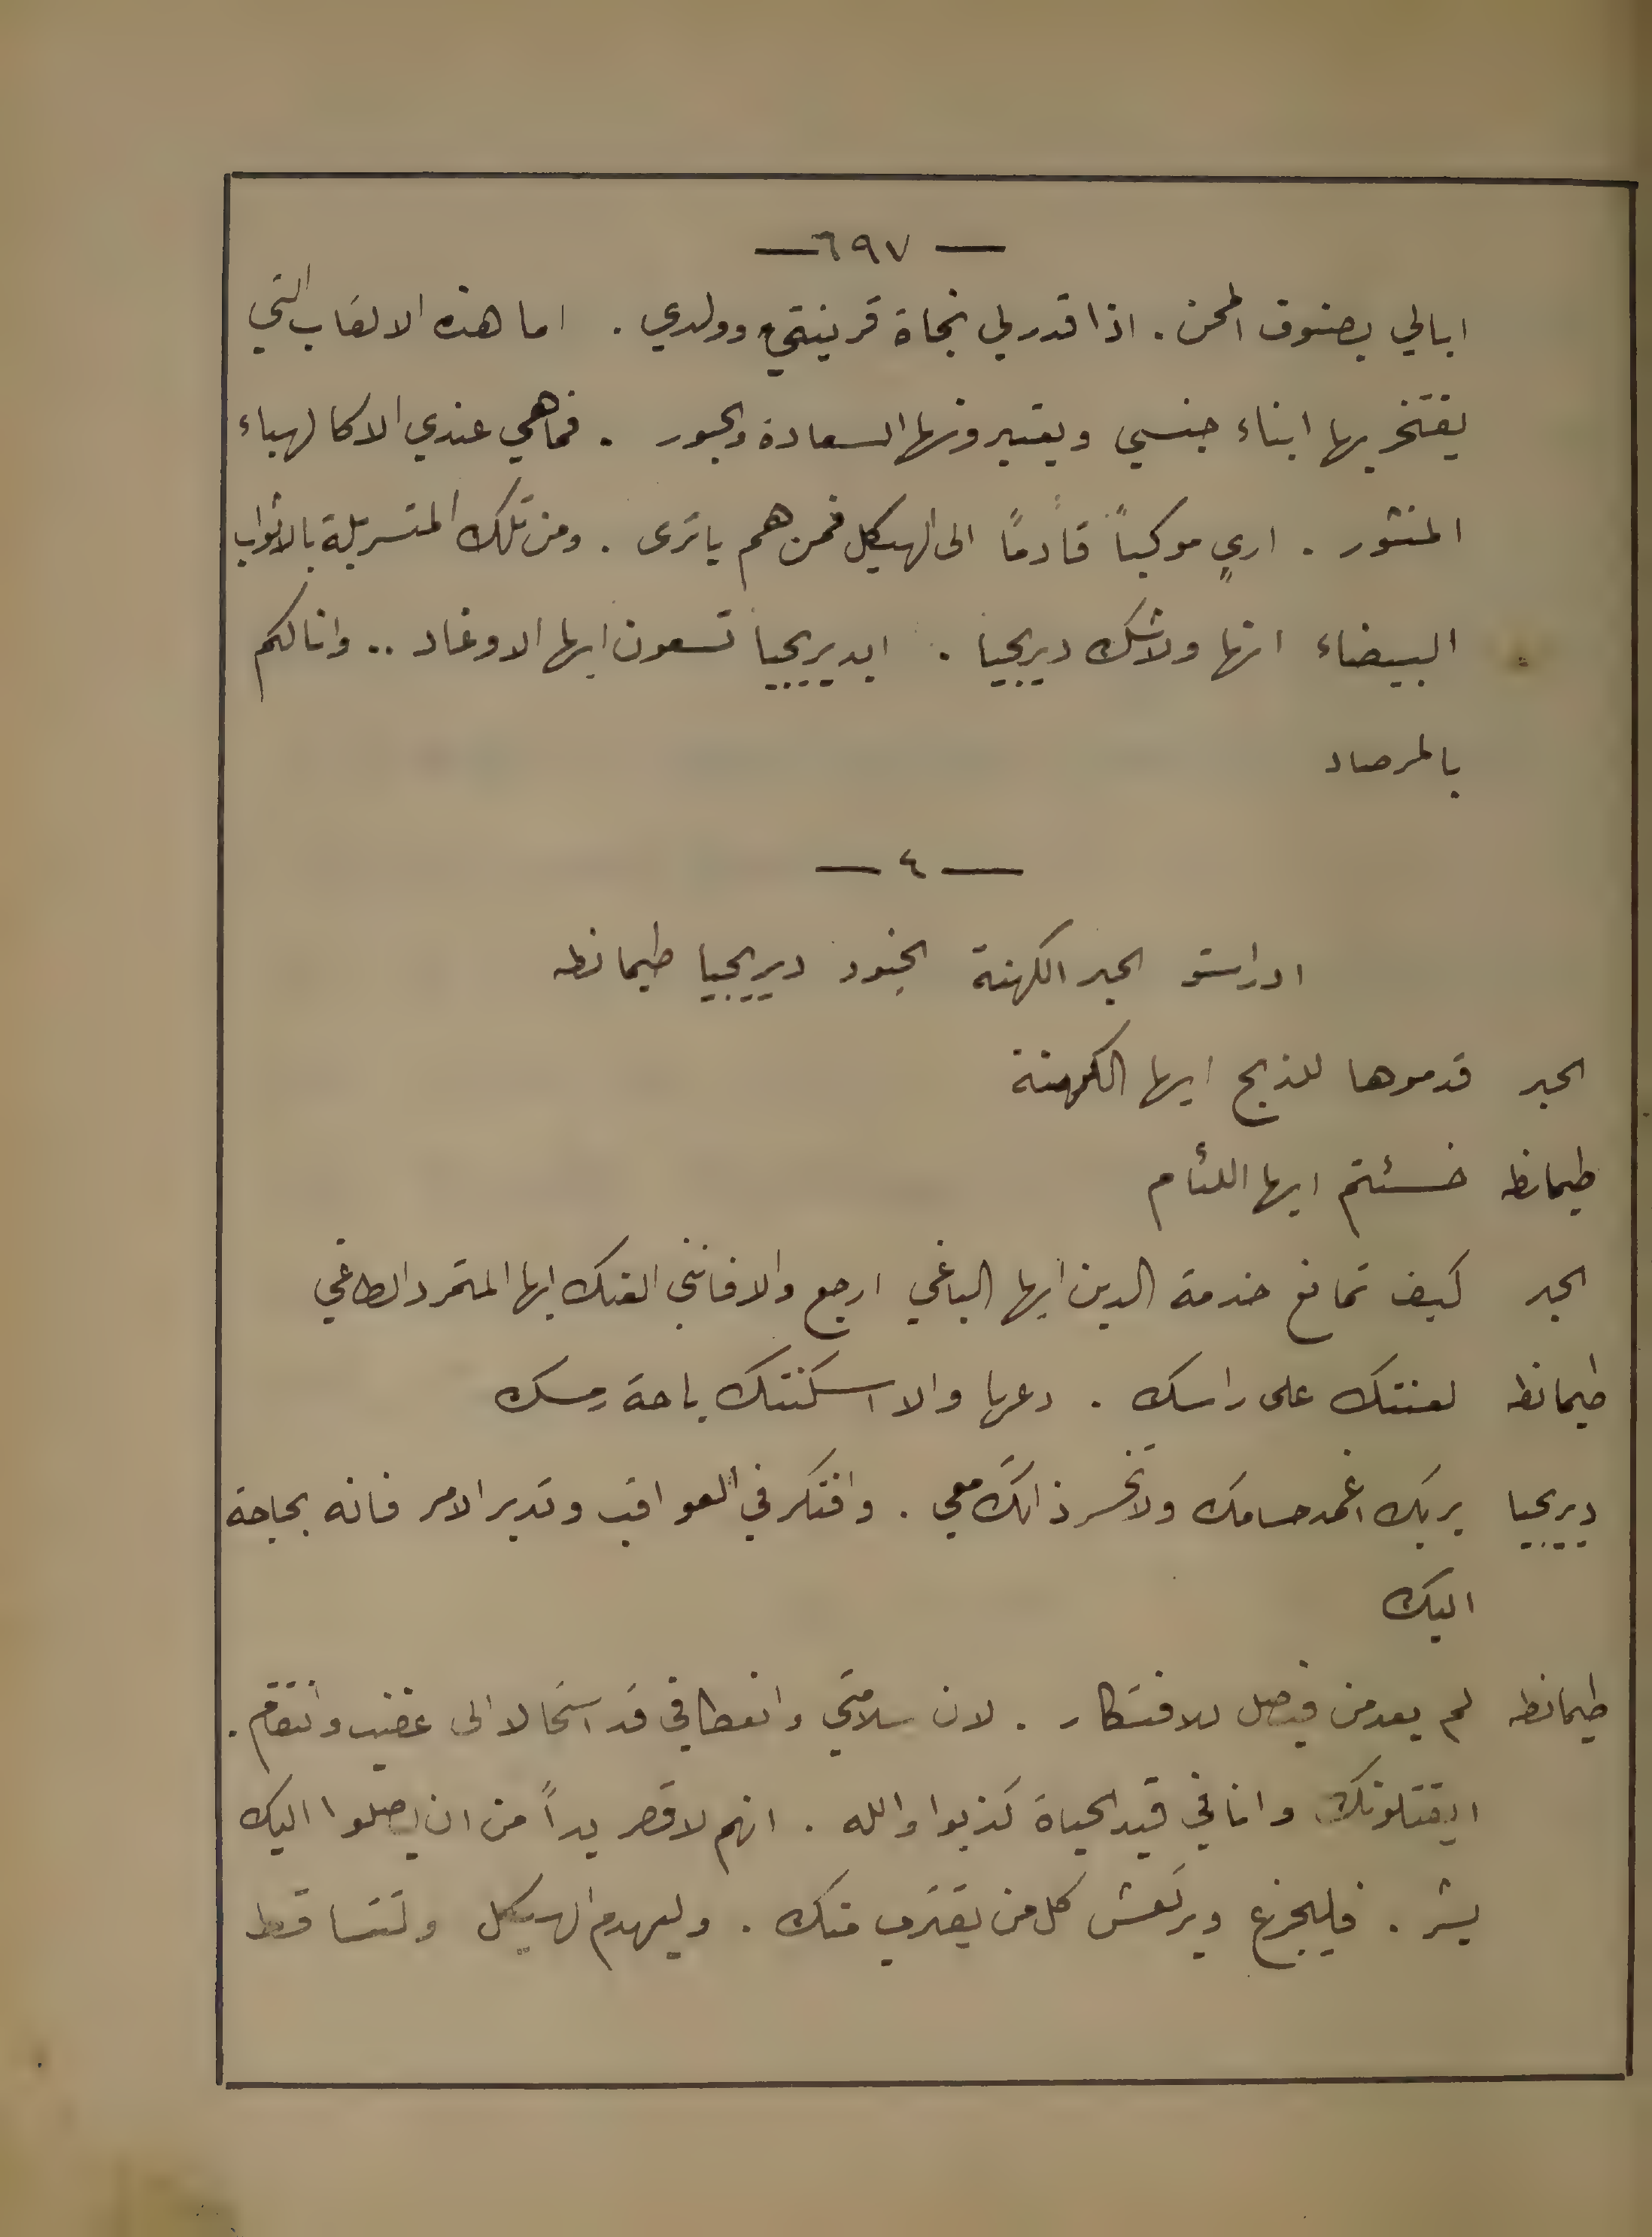 — ٦٩٧ —
ابالي بصنوف المحن . اذا قدر لي نجاة قرينتي وولدي . اما هذه الالقاب التي
يفتخر بها ابناء جنسي ويعتبرونها السعادة والحبور . فما هي عندي الا كالهباء
المنثور . ارى موكباً قادماً الى الهيكل فمن هم يا ترى . ومن تلك المتسربلة بالاثواب
البيضاء انها ولا شك ديريجيا . ابديريجيا تسعون ايها الاوغاد .. وانا لكم
بالمرصاد
— ٤ —
ادراستو الحبر الكهنة الجنود ديريجيا طيمانطه
الحبر قدموها للذبح ايها الكهنة
طيمانطه خسئتم ايها اللئام
الحبر كيف تمانع خدمة الدين ايها الباغي ارجع والا فانني العنك ايها المتمرد الطاغي
طيمانطه لعنتك على راسك . دعها والا اسكنتك باحة رمسك
ديريجيا بربك اغمد حسامك ولا تخسر ذاتك معي . وافتكر في العواقب وتدبر الامر فانه بحاجة
اليك
طيمانطه لم يعد من فيصل للافتكار . لان سلامتي وانعطافي قد استحالا الى غضب وانتقام .
ايقتلونك وانا في قيد الحياة كذبوا والله . انهم لاقصر يداً من ان يصلوا اليك
بشر . فليجزع ويرتعش كل من يقترب منك . وليهدم الهيكل ولتتساقط